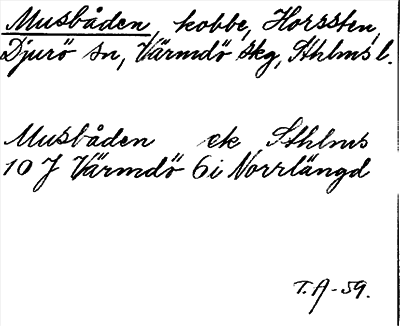 Musbåden, kobbe, Horssten,
Djurö sn, Värmdö skg, Sthlms l.
Musbåden ek Sthlms
10 J Värmdö 6i Norrlängd
T.A-59.